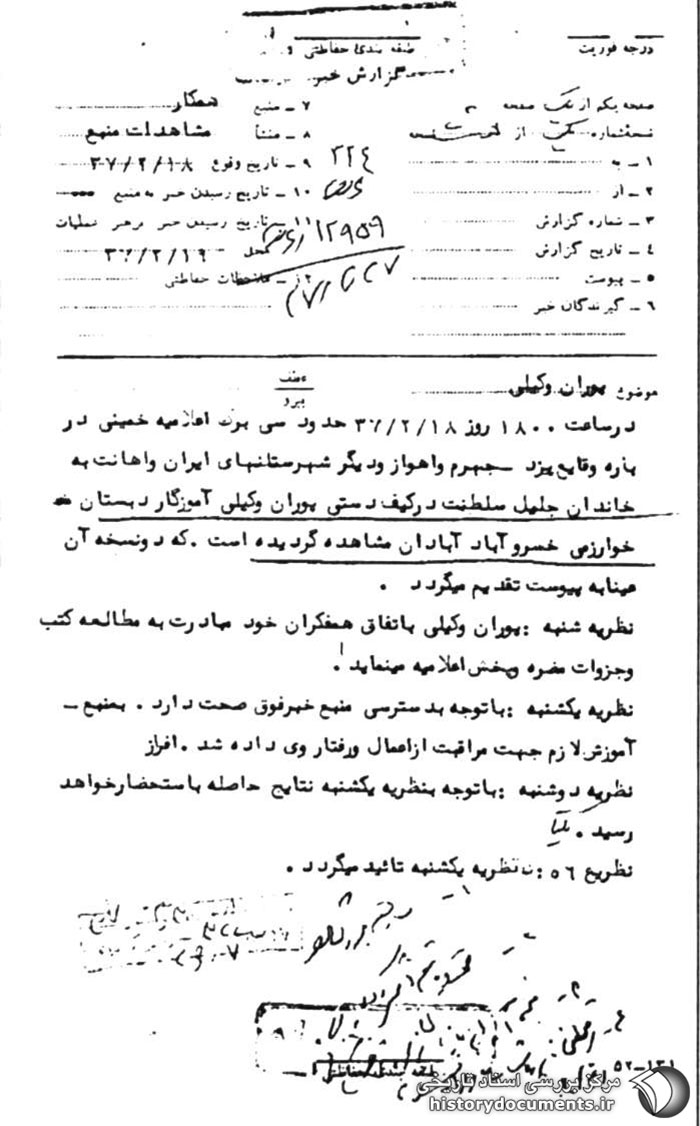 درجه فوریت
طبقه بندی حفاظتی
گزارش خبر
صفحه یکم از یک صفحه
نسخه شماره یک از نسخه
۱ ـ به
۲ ـ از
۳ ـ شماره گزارش
۴ ـ تاریخ گزارش
۵ ـ پیوست
۶ ـ گیرندگان خبر
۷ ـ منبع همکار
۸ ـ منشأ مشاهدات منبع
۹ ـ تاریخ وقوع ۳۷/۲/۱۸
۱۰ ـ تاریخ رسیدن خبر به منبع
۱۱ ـ تاریخ رسیدن خبر برهبر عملیات
محل ۳۷/۲/۱۹
ملاحظات حفاظتی
۲۲۴
۱۲۹۵۹
موضوع پوران وکیلی
عطف
پیرو
درساعت ۱۸۰۰ روز ۳۷/۲/۱۸ حدود سی برگ اعلامیه خمینی در
باره وقایع یزد ـ جهرم واهواز ودیگر شهرستانهای ایران واهانت به
خاندان جلیل سلطنت درکیف دستی پوران وکیلی آموزگار دبستان
خوارزمی خسروآباد آبادان مشاهده گردیده است . که دونسخه آن
عینابه پیوست تقدیم میگردد .
نظریه شنبه : پوران وکیلی باتفاق همفکران خود مبادرت به مطالعه کتب
وجزوات مضره وپخش اعلامیه مینماید .
نظریه یکشنبه : باتوجه بدسترسی منبع خبرفوق صحت دارد . بمنبع ـ
آموزش لازم جهت مراقبت ازاعمال ورفتار وی داده شد . افراز
نظریه دوشنبه : باتوجه بنظریه یکشنبه نتایج حاصله باستحضارخواهد
رسید .
نظریع ۵۶ : نظریه یکشنبه تائید میگردد .
طبقه بندی حفاظتی
۵۲-۱۳۱
مرکز بررسی اسناد تاریخی
historydocuments.ir